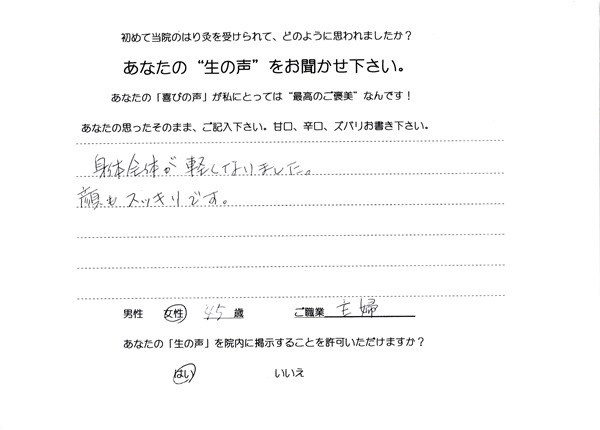 初めて当院のはり灸を受けられて、どのように思われましたか？
あなたの“生の声”をお聞かせ下さい。
あなたの「喜びの声」が私にとっては“最高のご褒美”なんです！
あなたの思ったそのまま、ご記入下さい。甘口、辛口、ズバリお書き下さい。
身体全体が軽くなりました。
顔もスッキリです。
男性 女性 45 歳 ご職業 主婦
あなたの「生の声」を院内に掲示することを許可いただけますか？
はい いいえ